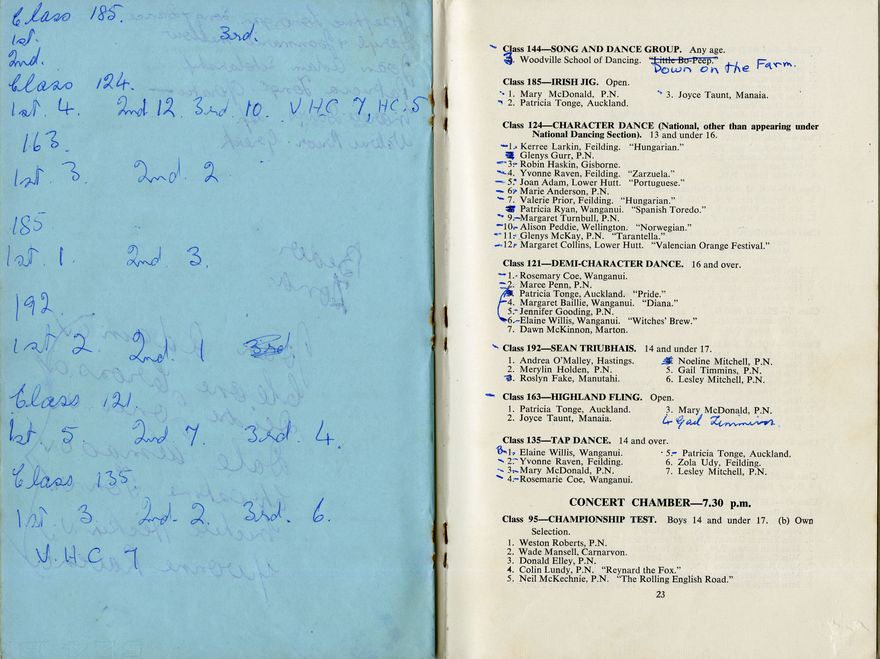 Class 185.
1st. 3rd.
2nd.
Class 124.
1st. 4. 2nd 12. 3rd. 10. V.H.C 7, H.C. 5
163.
1st. 3. 2nd. 2
185
1st. 1. 2nd. 3.
192.
1st. 2. 2nd. 1 3rd.
Class 121.
1st. 5 2nd 7. 3rd. 4.
Class 135.
1st. 3. 2nd. 2. 3rd. 6.
V.H.C 7
Class 144—SONG AND DANCE GROUP. Any age.
Woodville School of Dancing. "Little Bo-Peep."
Down on the Farm.
Class 185—IRISH JIG. Open.
1. Mary McDonald, P.N. 3. Joyce Taunt, Manaia.
2. Patricia Tonge, Auckland.
Class 124—CHARACTER DANCE (National, other than appearing under
National Dancing Section). 13 and under 16.
1. Kerree Larkin, Feilding. "Hungarian."
Glenys Gurr, P.N.
3. Robin Haskin, Gisborne.
4. Yvonne Raven, Feilding. "Zarzuela."
5. Joan Adam, Lower Hutt. "Portuguese."
6. Marie Anderson, P.N.
7. Valerie Prior, Feilding. "Hungarian."
Patricia Ryan, Wanganui. "Spanish Toredo."
9. Margaret Turnbull, P.N.
10. Alison Peddie, Wellington. "Norwegian."
11. Glenys McKay, P.N. "Tarantella."
12. Margaret Collins, Lower Hutt. "Valencian Orange Festival."
Class 121—DEMI-CHARACTER DANCE. 16 and over.
1. Rosemary Coe, Wanganui.
2. Maree Penn, P.N.
3. Patricia Tonge, Auckland. "Pride."
4. Margaret Baillie, Wanganui. "Diana."
5. Jennifer Gooding, P.N.
6. Elaine Willis, Wanganui. "Witches' Brew."
7. Dawn McKinnon, Marton.
Class 192—SEAN TRIUBHAIS. 14 and under 17.
1. Andrea O'Malley, Hastings. Noeline Mitchell, P.N.
2. Merylin Holden, P.N. 5. Gail Timmins, P.N.
3. Roslyn Fake, Manutahi. 6. Lesley Mitchell, P.N.
Class 163—HIGHLAND FLING. Open.
1. Patricia Tonge, Auckland. 3. Mary McDonald, P.N.
2. Joyce Taunt, Manaia. 4 Gail Timmins.
Class 135—TAP DANCE. 14 and over.
1. Elaine Willis, Wanganui. 5. Patricia Tonge, Auckland.
2. Yvonne Raven, Feilding. 6. Zola Udy, Feilding.
3. Mary McDonald, P.N. 7. Lesley Mitchell, P.N.
4. Rosemarie Coe, Wanganui.
CONCERT CHAMBER—7.30 p.m.
Class 95—CHAMPIONSHIP TEST. Boys 14 and under 17. (b) Own
Selection.
1. Weston Roberts, P.N.
2. Wade Mansell, Carnarvon.
3. Donald Elley, P.N.
4. Colin Lundy, P.N. "Reynard the Fox."
5. Neil McKechnie, P.N. "The Rolling English Road."
23